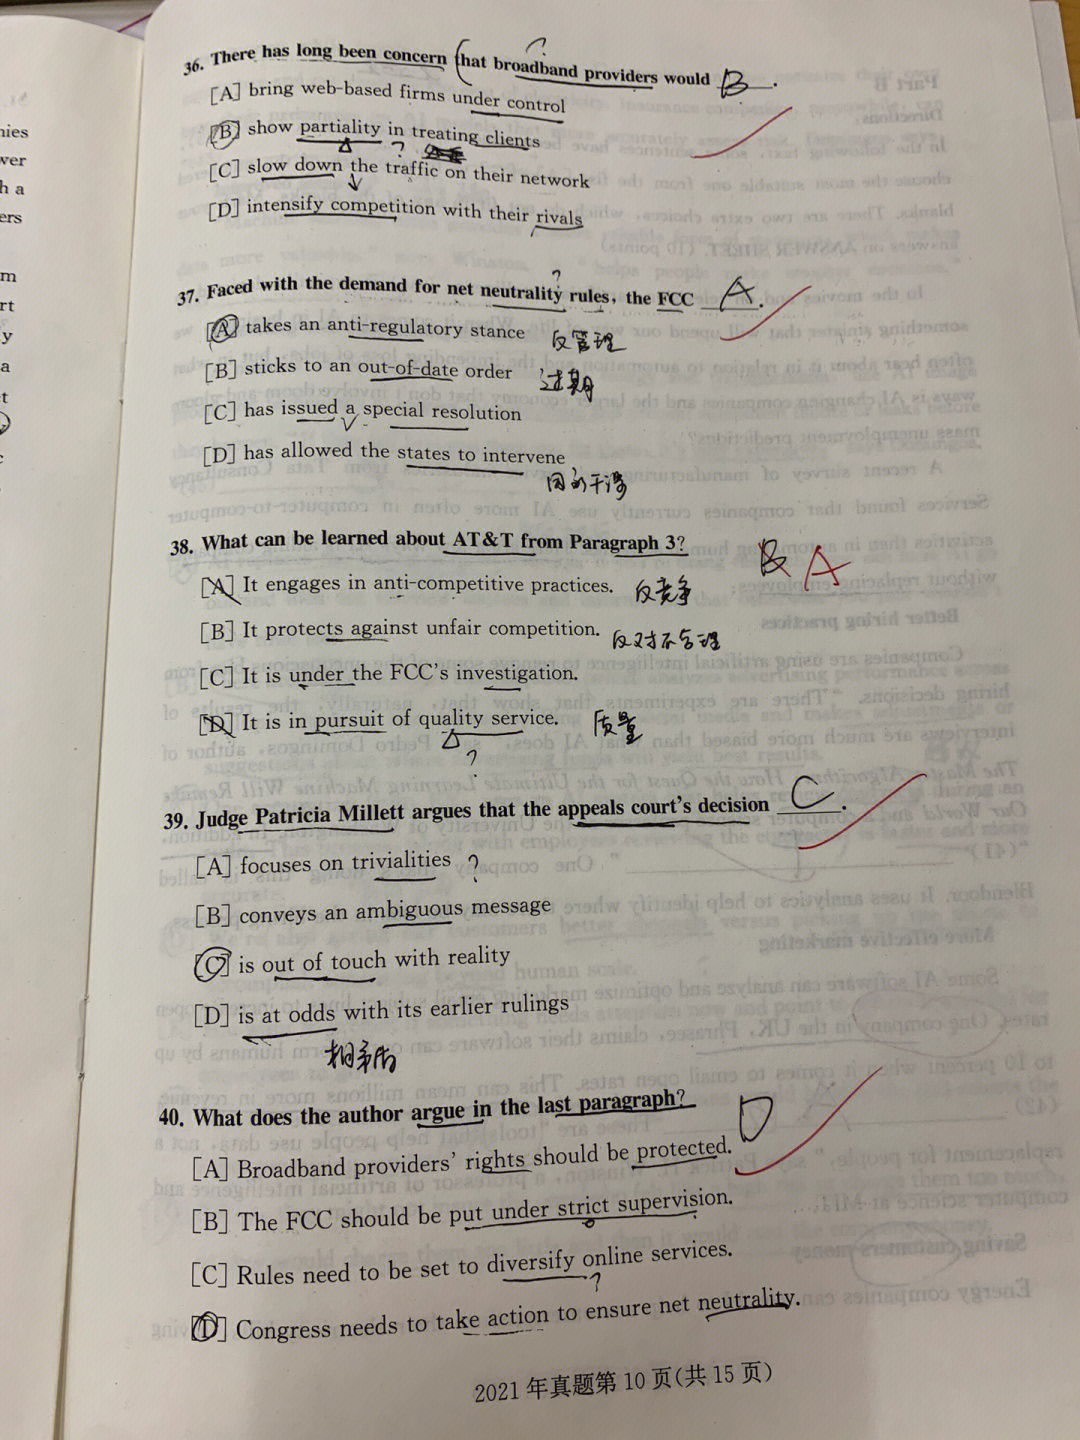 nies
wer
h a
ers
m
rt
y
a
t
36. There has long been concern that broadband providers would B.
[A] bring web-based firms under control
[B] show partiality in treating clients
[C] slow down the traffic on their network
[D] intensify competition with their rivals
37. Faced with the demand for net neutrality rules, the FCC A.
[A] takes an anti-regulatory stance 反管理
[B] sticks to an out-of-date order 过期
[C] has issued a special resolution
[D] has allowed the states to intervene
干涉
38. What can be learned about AT&T from Paragraph 3? B A
[A] It engages in anti-competitive practices. 反竞争
[B] It protects against unfair competition. 反对不合理
[C] It is under the FCC's investigation.
[D] It is in pursuit of quality service. 质量
39. Judge Patricia Millett argues that the appeals court's decision C.
[A] focuses on trivialities ?
[B] conveys an ambiguous message
[C] is out of touch with reality
[D] is at odds with its earlier rulings
相矛盾
40. What does the author argue in the last paragraph? D
[A] Broadband providers' rights should be protected.
[B] The FCC should be put under strict supervision.
[C] Rules need to be set to diversify online services.
[D] Congress needs to take action to ensure net neutrality.
2021 年真题第 10 页(共 15 页)